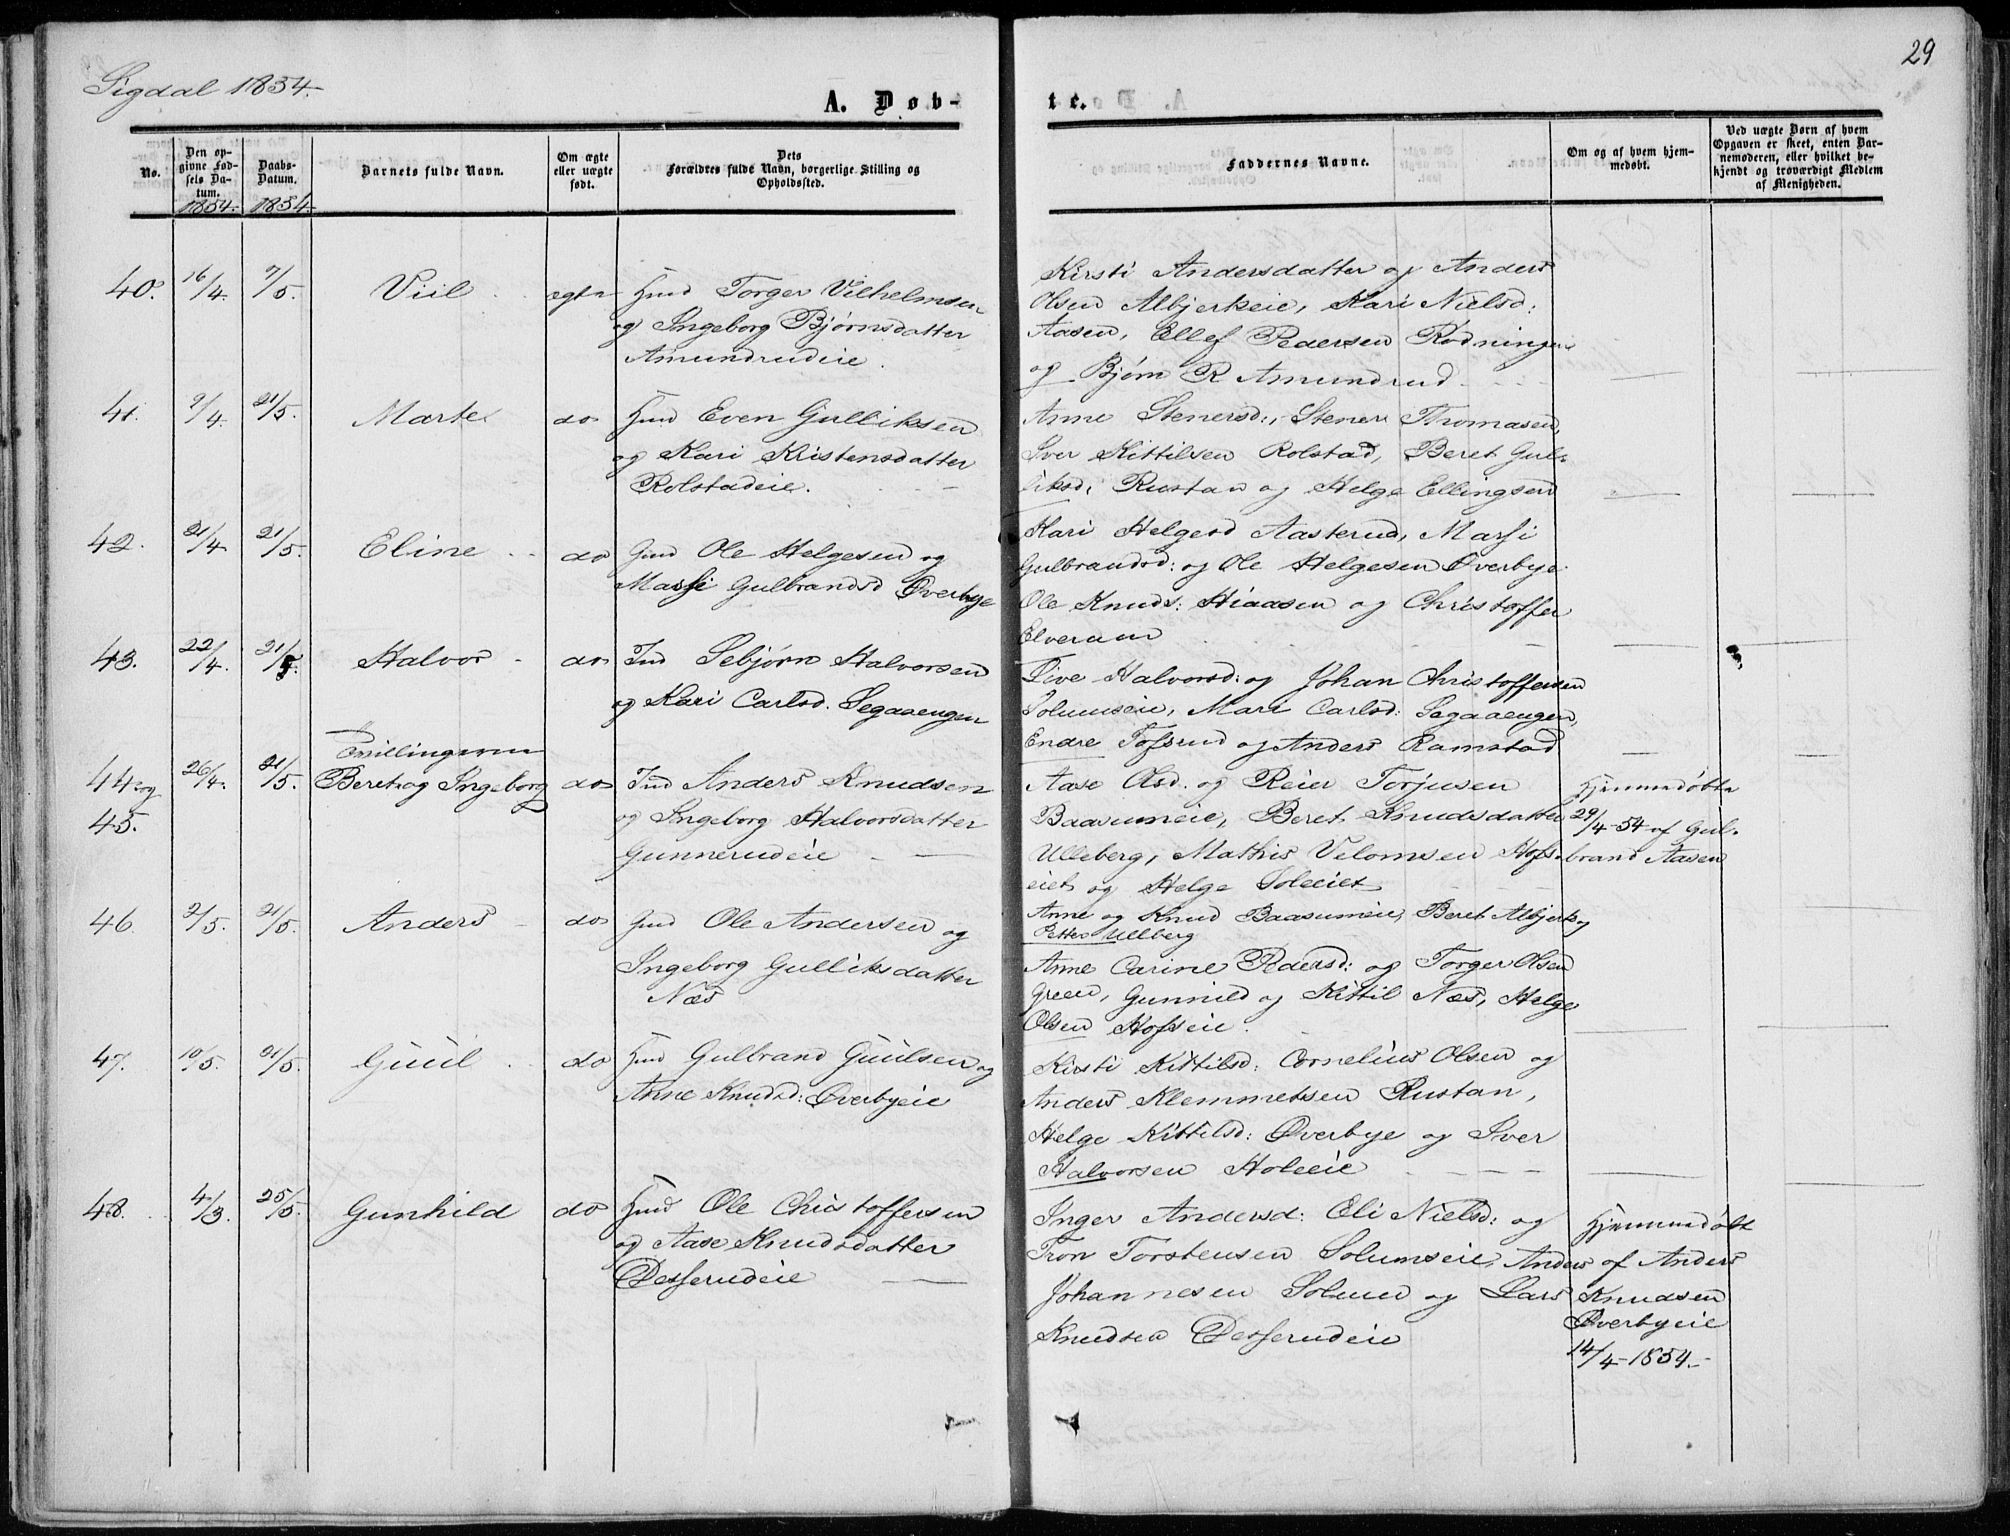 29
Sigdal 1854.
A. Døb-
te.
No.
Den op-
givne Fød-
sels Da-
tum.
1854.
Daabs-
Datum.
1854.
Barnets fulde Navn.
Om ægte
eller uægte
født.
Dets
Forældres fulde Navn, borgerlige Stilling og
Opholdssted.
Faddernes Navne.
Om og af hvem hjem-
medøbt.
Ved uægte Børn af hvem
Opgaven er skeet, enten Bar-
nemoderen, eller hvilket be-
kjendt og troværdigt Medlem
af Menigheden.
40. 16/4. 7/5. Viil ægte Hmd Torger Vilhelmsen
og Ingeborg Bjørnsdatter
Amundrudeie.
Kirsti Andersdatter og Anders
Olsen Albjerkeie, Kari Nielsd:
Aasen, Ellef Pedersen Rødningen
og Bjørn R Amundrud
41. 9/4. 21/5. Marte do Hmd Even Gulliksen
og Kari Kristensdatter
Rolstadeie.
Anne Stenersd:, Stener Thomasen,
Iver Kittilsen Rolstad, Beret Gul-
liksd: Rustan og Helge Ellingsen
42. 21/4 21/5. Eline do Gmd Ole Helgesen og
Massi Gulbrandsd Øverbye
Kari Helgesd Aasterud, Massi
Gulbrandsd: og Ole Helgesen Øverbye
Ole Knuds: Hiaasen og Christoffer
Elveraan
43. 22/4. 21/5. Halvor do Ind Sebjørn Halvorsen
og Kari Carlsd. Segaaengen
Live Halvorsd: og Johan Christoffersen
Solumseie, Mari Carlsd: Segaaengen,
Endre Tofsrud og Anders Ramstad
Tvillingerne
44 og 26/4. 21/5. Beret og Ingeborg do Ind Anders Knudsen
45. og Ingeborg Halvorsdatter
Gunnerudeie
Aase Olsd. og Reier Torjusen
Baasumeie, Beret Knudsdatter
Ulleberg, Mathis Velomsen Hofs-
eiet og Helge Soleeiet
Hjemmedøbte
29/4-54 af Gul-
brand Aasen
46. 2/5. 21/5. Anders do Gmd Ole Andersen og
Ingeborg Gulliksdatter
Næs
Anne og Knud Baasumeie, Beret Albjerk og
Petter Ullberg
Anne Carine Pedersd: og Torger Olsen
Green, Gunnild og Kittil Næs, Helge
Olsen Hofseie.
47. 10/5. 21/5. Guul do Hmd Gulbrand Guulsen og
Anne Knudsd: Øverbyeie
Kirsti Kittilsd: Cornelius Olsen og
Anders Klemmetsen Rustan,
Helge Kittilsd: Øverbye og Iver
Halvorsen Holeeie
48. 4/3. 25/5. Gunhild do Hmd Ole Christoffersen
og Aase Knudsdatter
Desserudeie
Inger Andersd: Eli Nielsd: og
Tron Torstensen Solumseie, Anders
Johannesen Solum og Lars
Knudsen Desserudeie
Hjemmedøbt
af Anders
Knudsen
Øverbyeie
14/4-1854.